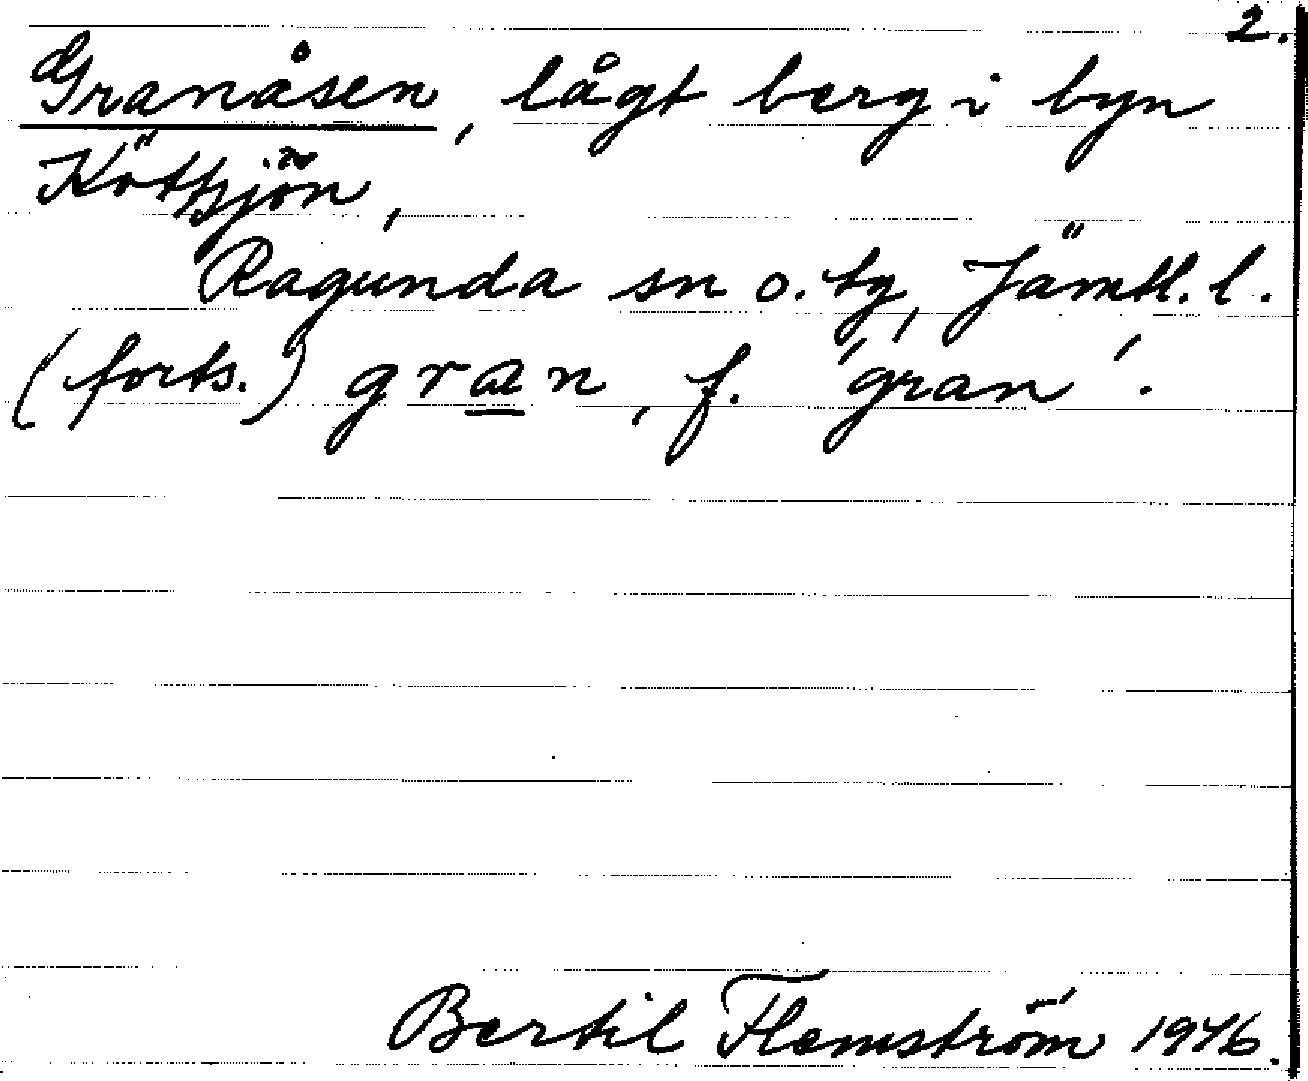 2.
Granåsen, lågt berg i byn
Köttsjön,
Ragunda sn o. tg, Jämtl. l.
(forts.) gran, f. 'gran'.
Bertil Flemström 1946.